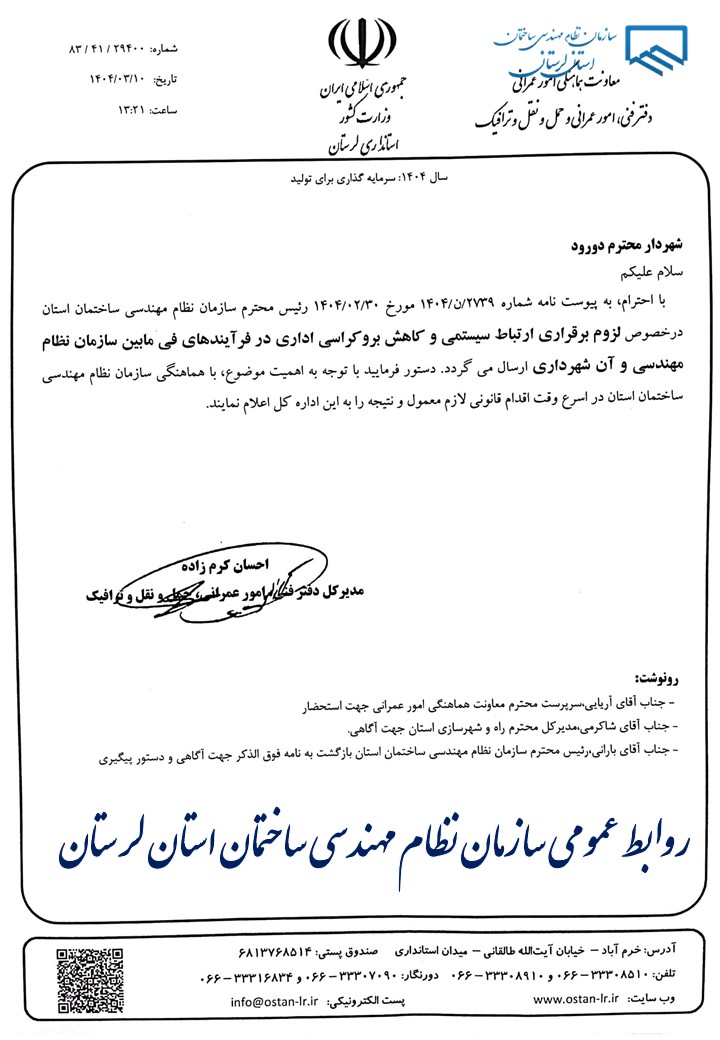 سازمان نظام مهندسی ساختمان
استان لرستان
معاونت هماهنگی امور عمرانی
دفتر فنی، امور عمرانی و حمل و نقل و ترافیک
جمهوری اسلامی ایران
وزارت کشور
استانداری لرستان
شماره: ۸۳ / ۴۱ / ۲۹۴۰۰
تاریخ: ۱۴۰۴/۰۳/۱۰
ساعت: ۱۳:۲۱
سال ۱۴۰۴: سرمایه گذاری برای تولید
شهردار محترم دورود
سلام علیکم
با احترام، به پیوست نامه شماره ۲۷۳۹/ن/۱۴۰۴ مورخ ۱۴۰۴/۰۲/۳۰ رئیس محترم سازمان نظام مهندسی ساختمان استان
درخصوص لزوم برقراری ارتباط سیستمی و کاهش بروکراسی اداری در فرآیندهای فی مابین سازمان نظام
مهندسی و آن شهرداری ارسال می گردد. دستور فرمایید با توجه به اهمیت موضوع، با هماهنگی سازمان نظام مهندسی
ساختمان استان در اسرع وقت اقدام قانونی لازم معمول و نتیجه را به این اداره کل اعلام نمایند.
احسان کرم زاده
مدیرکل دفتر فنی، امور عمرانی، حمل و نقل و ترافیک
رونوشت:
- جناب آقای آریایی،سرپرست محترم معاونت هماهنگی امور عمرانی جهت استحضار
- جناب آقای شاکرمی،مدیرکل محترم راه و شهرسازی استان جهت آگاهی.
- جناب آقای بارانی،رئیس محترم سازمان نظام مهندسی ساختمان استان بازگشت به نامه فوق الذکر جهت آگاهی و دستور پیگیری
روابط عمومی سازمان نظام مهندسی ساختمان استان لرستان
آدرس: خرم آباد – خیابان آیت‌الله طالقانی – میدان استانداری صندوق پستی: ۶۸۱۳۷۶۸۵۱۴
تلفن: ۳۳۳۰۸۵۱۰-۰۶۶ و ۳۳۳۰۸۹۱۰-۰۶۶ دورنگار: ۳۳۳۰۷۰۹۰-۰۶۶ و ۳۳۳۱۶۸۳۴-۰۶۶
وب سایت: www.ostan-lr.ir پست الکترونیکی: info@ostan-lr.ir